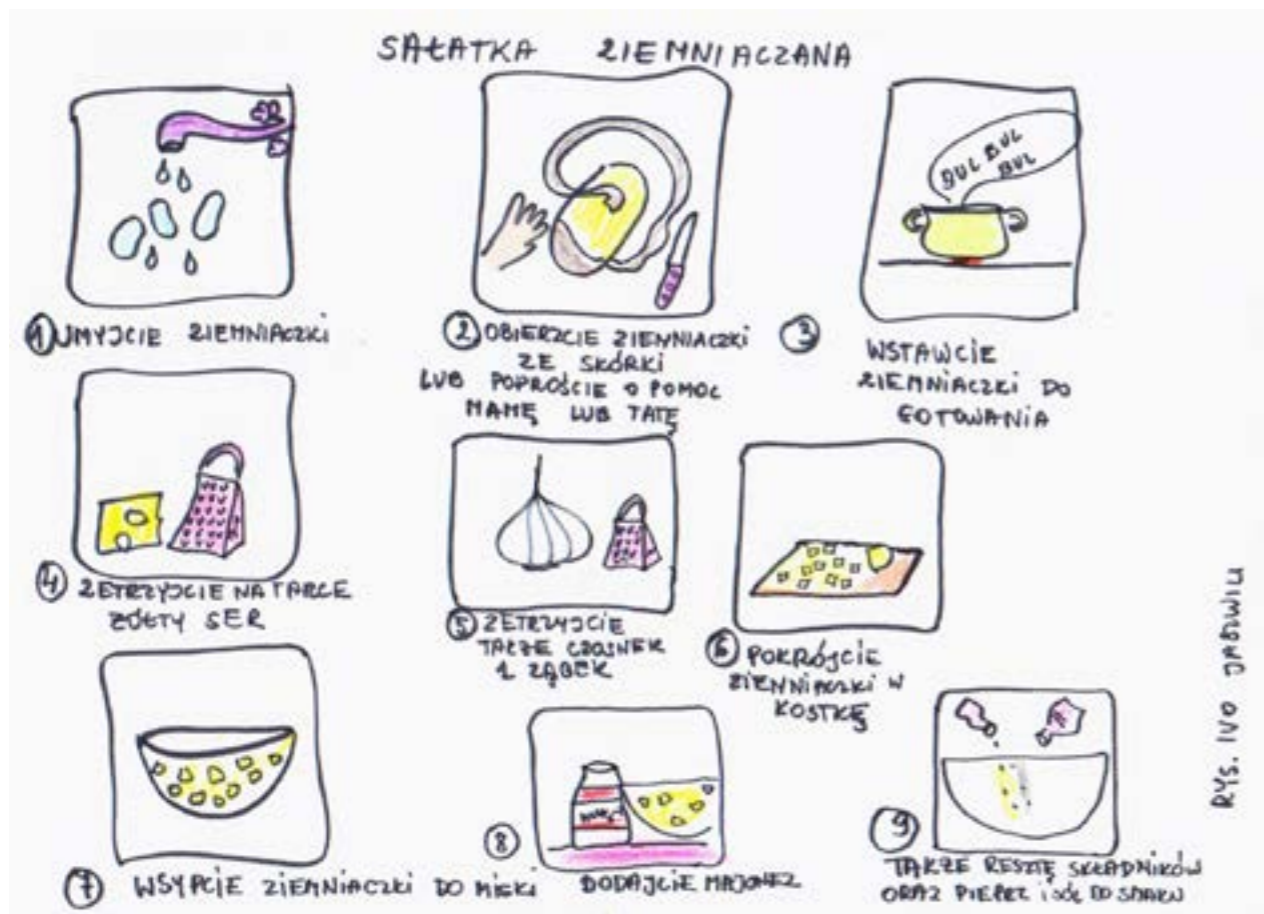 SAŁATKA ZIEMNIACZANA
BUL BUL
BUL
1 UMYJCIE ZIEMNIACZKI
2 OBIERZCIE ZIEMNIACZKI
ZE SKÓRKI
LUB POPROŚCIE O POMOC
MAMĘ LUB TATĘ
3
WSTAWCIE
ZIEMNIACZKI DO
GOTOWANIA
4 ZETRZYJCIE NA TARCE
ŻÓŁTY SER
5 ZETRZYJCIE
TAKŻE CZOSNEK
1 ZĄBEK
6 POKRÓJCIE
ZIEMNIACZKI W
KOSTKĘ
7 WSYPCIE ZIEMNIACZKI DO MISKI
8 DODAJCIE MAJONEZ
9
TAKŻE RESZTĘ SKŁADNIKÓW
ORAZ PIEPRZ I SÓL DO SMAKU
RYS. IVO